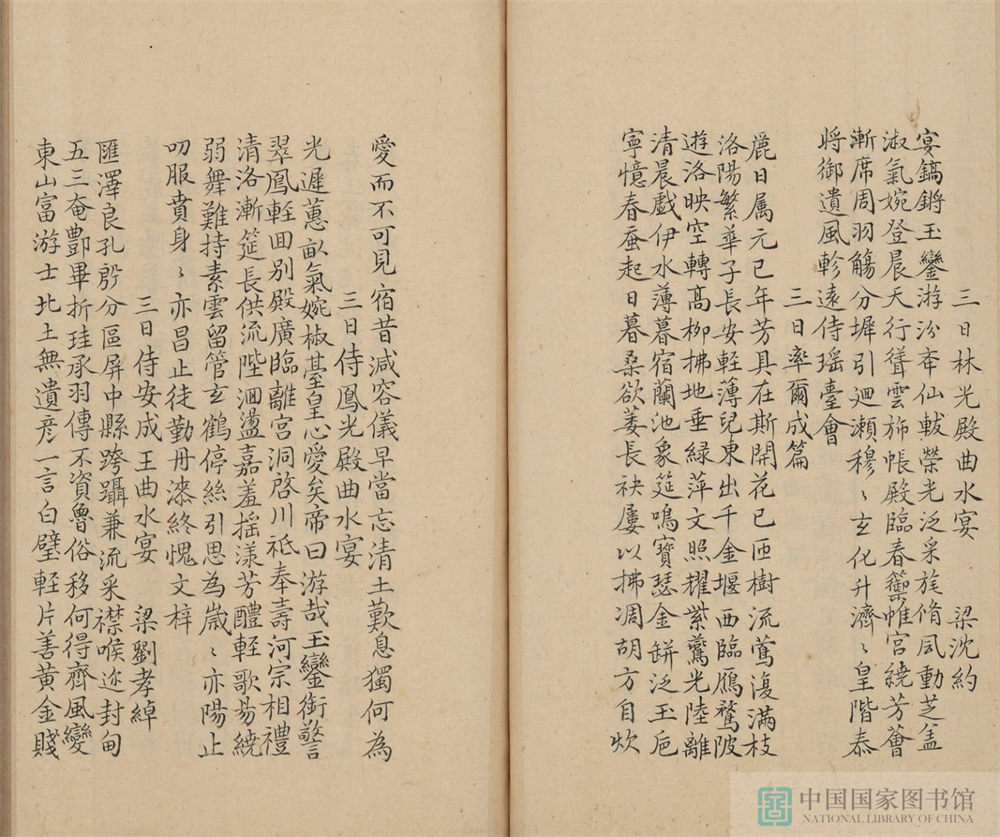 三日林光殿曲水宴　梁沈約
宴鎬鏘玉鑾游汾奉仙軷榮光泛采旄脩風動芝盖
淑氣婉登晨天行聳雲斾帳殿臨春籞帷宮繞芳薈
漸席周羽觴分墀引迴瀬穆〻玄化升濟〻皇階泰
將御遺風軫遠侍瑶臺會
三日率爾成篇
麗日属元巳年芳具在斯開花已匝樹流鶯復滿枝
洛陽繁華子長安輕薄兒東出千金堰西臨鴈鶩陂
遊洛映空轉高栁拂地垂緑萍文照耀紫鷰光陸離
清晨戲伊水薄暮宿蘭池象筵鳴寶瑟金缾泛玉巵
寧憶春蚕起日暮桑欲萎長袂屢以拂凋胡方自炊
愛而不可見宿昔減容儀早當忘清土歎息獨何為
三日侍鳳光殿曲水宴
光遲蕙畝氣婉椒臺皇心愛矣帝曰游哉玉鑾銜警
翠鳳輊囬别殿廣臨離宮洞啓川祇奉壽河宗相禮
清洛漸筵長供流陛洄盪嘉羞揺漾芳醴輕歌昜繞
弱舞難持素雲留管玄鶴停絲引思為嵗〻亦陽止
叨服賁身〻亦昌止徒勤丹漆終愧文梓
三日侍安成王曲水宴　梁劉孝綽
匯澤良孔殷分區屏中縣跨躡兼流采襟喉迩封甸
五三奄酆畢折珪承羽傳不資魯俗移何得齊風變
東山富游士北土無遺彦一言白璧輕片善黄金賤
中国国家图书馆
NATIONAL LIBRARY OF CHINA